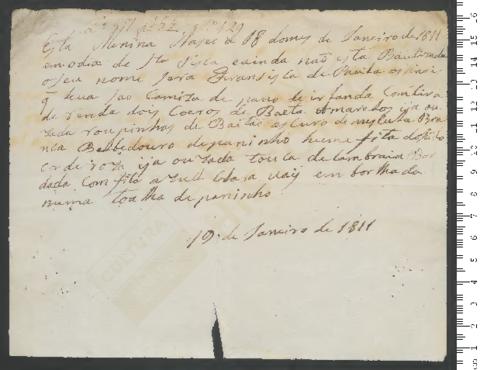 nº 129
Esta Menina Naseo a 18 do mes de Janeiro de 1811
em o dia de Sta Prisca ainda não esta Bautizada
o seu nome sera Fransisca de Paula os trastes
q leva sao Camiza de pano de irlanda Com tira
de renda dois Coeros de Baeta Amarelos ja ou
zada roupinhas de Baetão escuro de
nca Belbedouro de paninho huma fita
cor de roza ja ouzada touca de Cambraia Bor
dada Com fita azul Clara vai em borlhada
numa toalha de paninho
19 de Janeiro de 1811
CULTURA